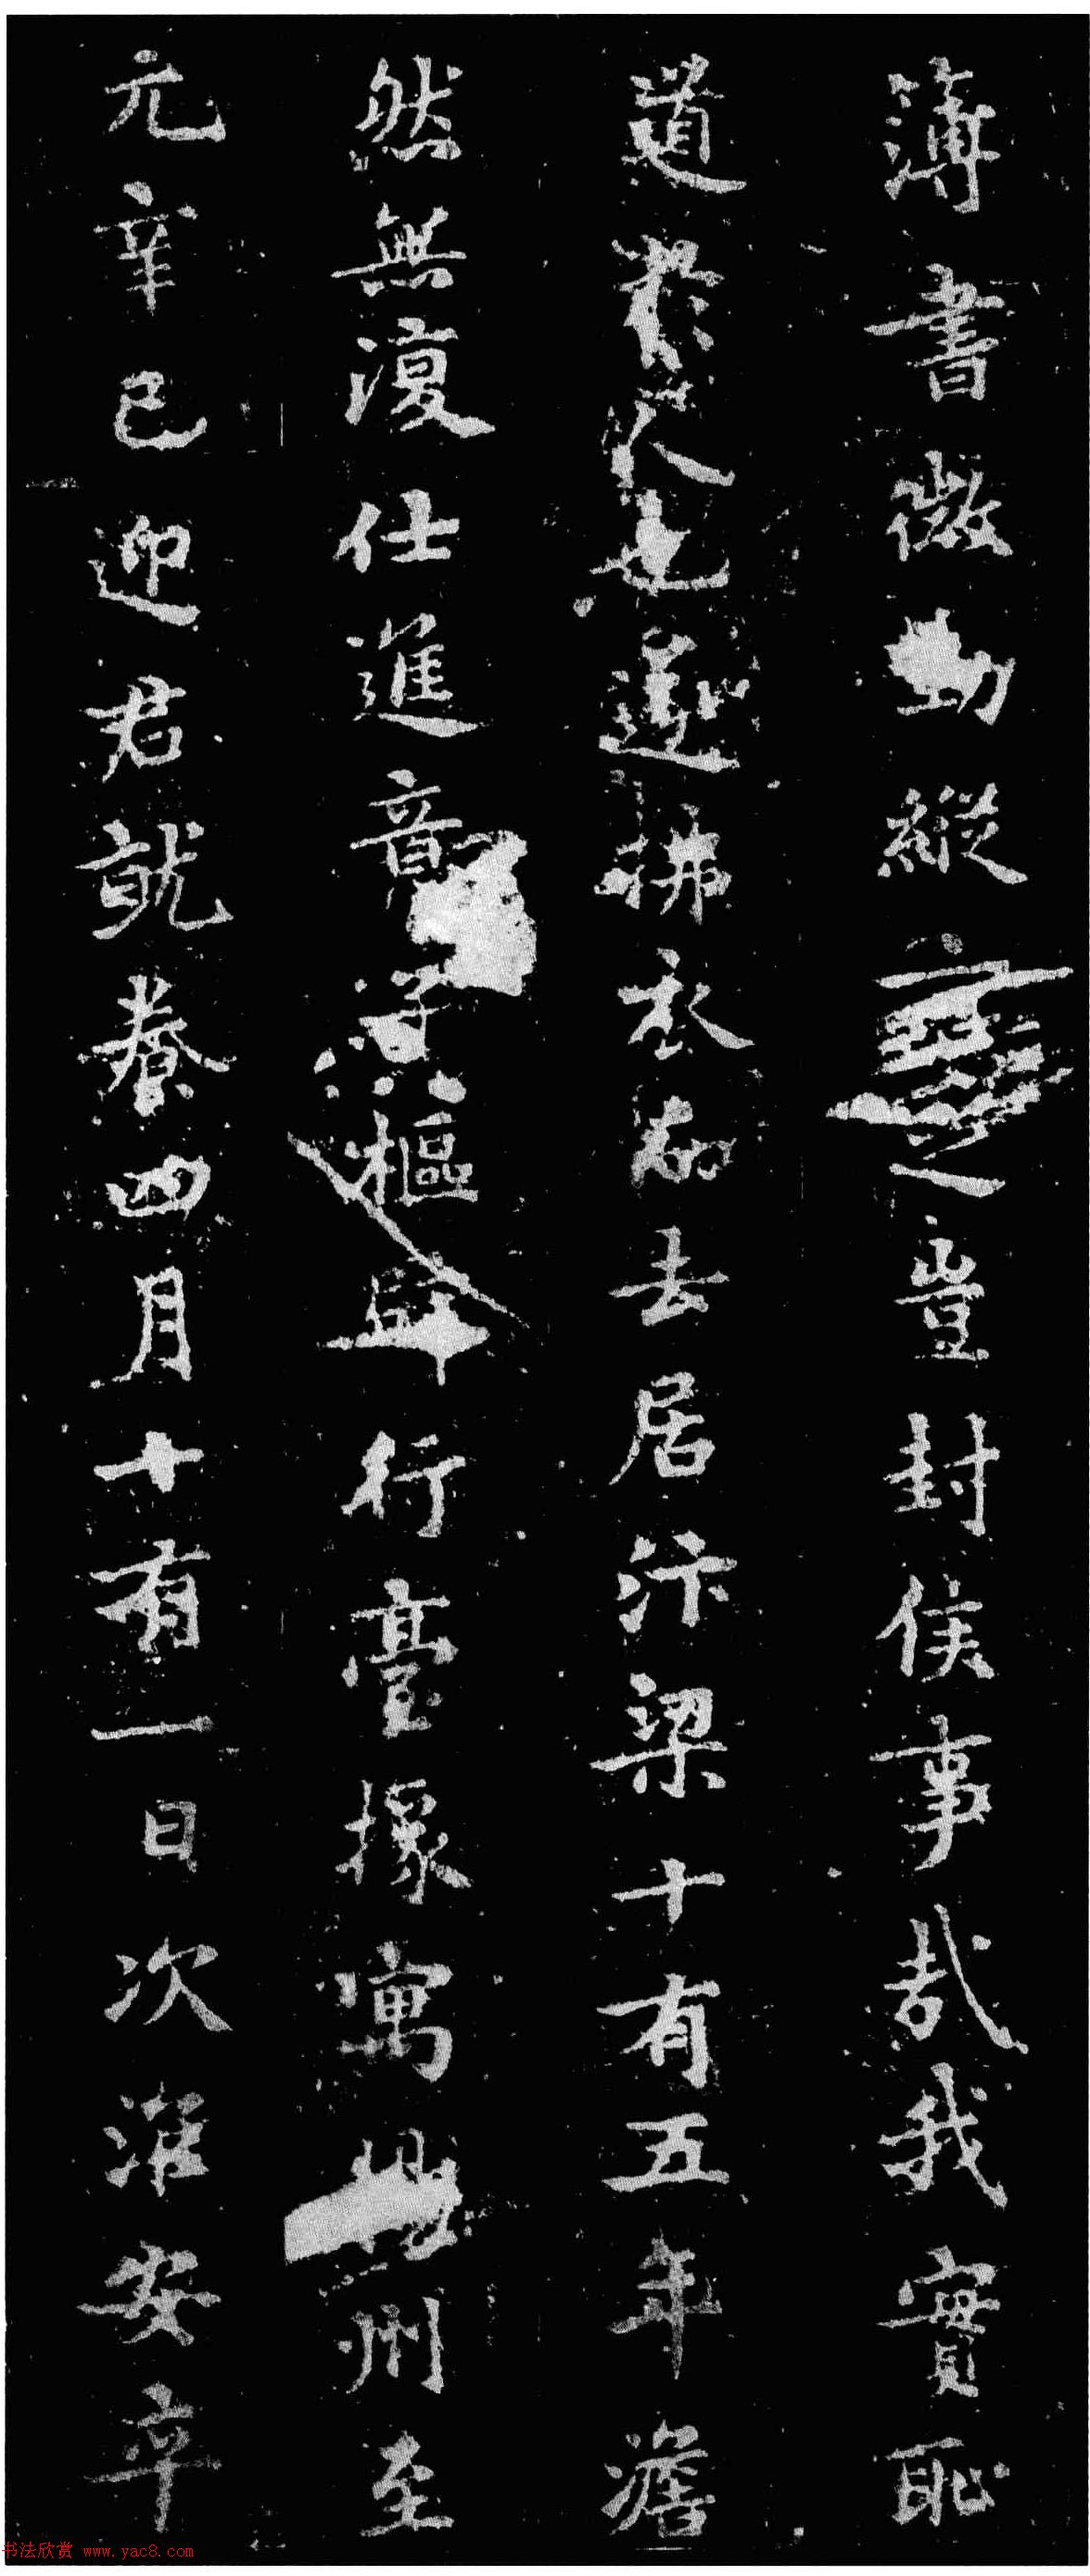 簿書微勛縱之豈封侯事哉我實恥
道人也遂拂衣而去居汴梁十有五年澹
然無復仕進音子樞辟行臺掾寓州至
元辛巳迎君就養四月十有一日次淮安卒
书法欣赏 www.yac8.com